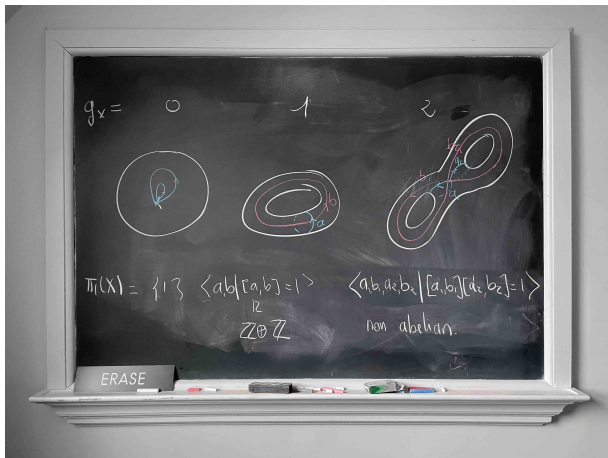 g_X = 0 1 2
b
a
b₁
a₁
b₂
a₂
π₁(X) = {1} ⟨ab|[a,b]=1⟩ ⟨a₁b₁a₂b₂|[a₁b₁][a₂,b₂]=1⟩
≅
ℤ⊕ℤ non abelian.
ERASE